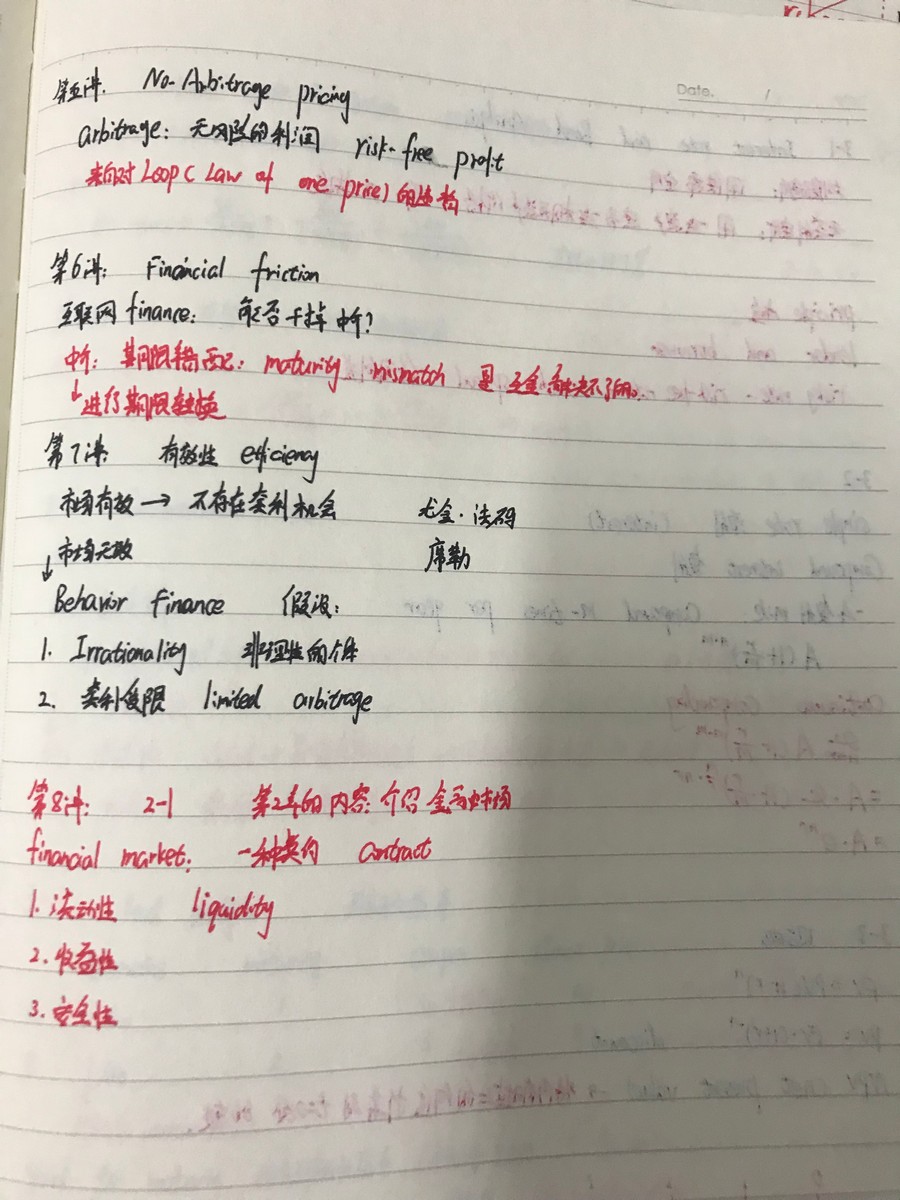 Date. /
第五讲. No-Arbitrage pricing
arbitrage: 无风险的利润 risk-free profit
来自对 LOOP ( Law of one price) 的违背
第6讲: Financial friction
互联网 finance: 能否干掉中介?
中介: 期限错配: maturity mismatch 是 互金解决不了的.
↓进行期限转换
第7讲: 有效性 efficiency
市场有效 → 不存在套利机会 尤金·法玛
↓市场无效 席勒
Behavior Finance 假设:
1. Irrationality 非理性的个体
2. 套利受限 limited arbitrage
第8讲: 2-1 第2章的内容: 介绍金融市场
financial market: 一种契约 contract
1. 流动性 liquidity
2. 收益性
3. 安全性